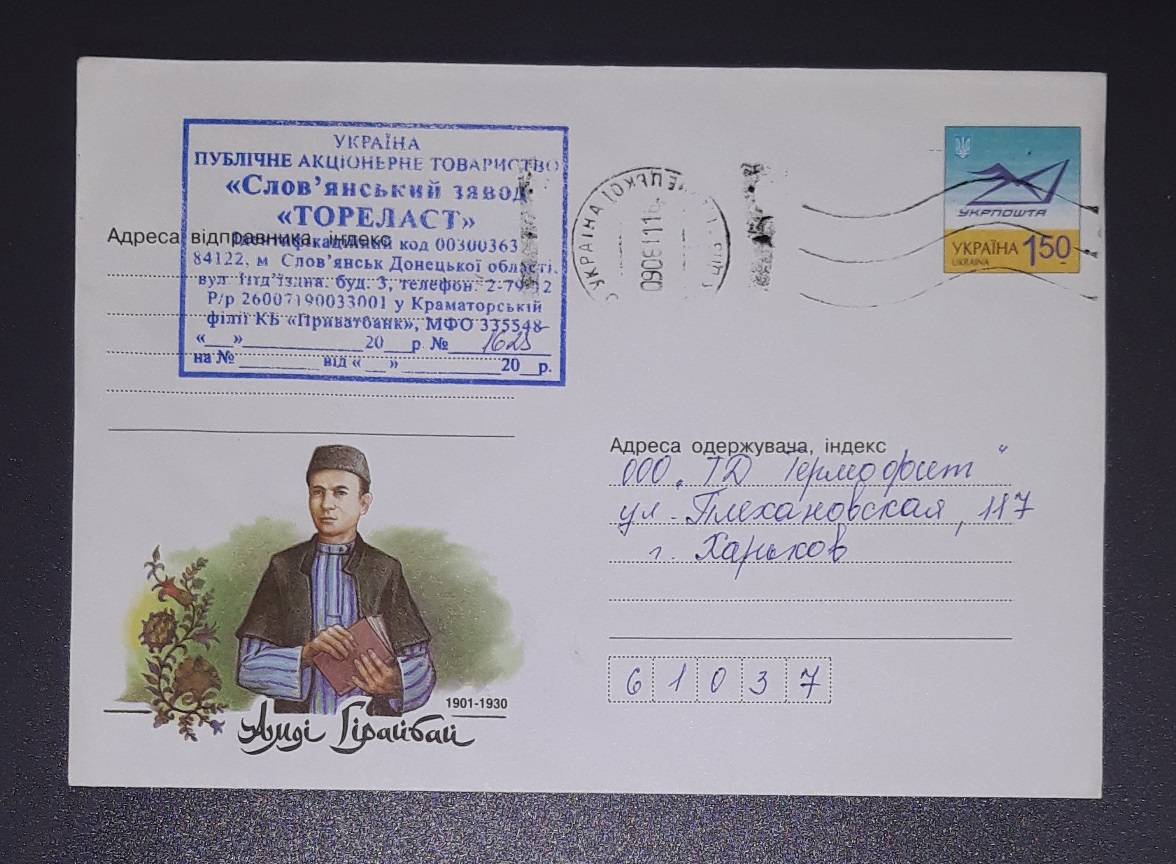 УКРАЇНА
ПУБЛІЧНЕ АКЦІОНЕРНЕ ТОВАРИСТВО
«Слов'янський завод
«ТОРЕЛАСТ»
Ідентифікаційний код 00300363
84122, м Слов'янськ Донецької області.
вул буд. 3, телефон: 2-79
Р/р 26007190033001 у Краматорській
філії КБ «Приватбанк», МФО 335548
«___»____________20___р. № 1625
на № ________ від «___»__________20__р.
Адреса відправника, індекс
УКРАЇНА
УКРПОШТА
УКРАЇНА 150
UKRAINA
Адреса одержувача, індекс
ООО „ТД Термофит“
ул. Плехановская, 117
г. Харьков
61037
1901-1930
Амді Гірайбай